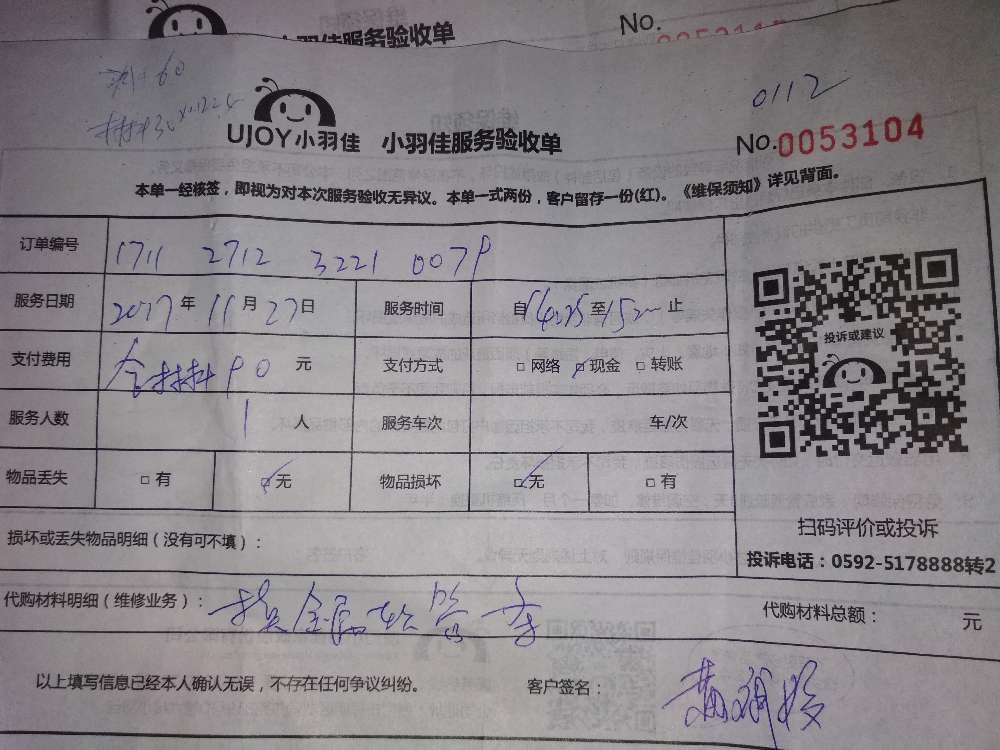 小羽佳服务验收单
No.
0112
UJOY小羽佳 小羽佳服务验收单 No.0053104
本单一经核签，即视为对本次服务验收无异议。本单一式两份，客户留存一份(红)。《维保须知》详见背面。
订单编号 1711 2712 3221 007P
服务日期 2017年11月27日 服务时间 自 至 止
支付费用 含材料90元 支付方式 □网络 ☑现金 □转账
投诉或建议
服务人数 1人 服务车次 车/次
物品丢失 □有 ☑无 物品损坏 ☑无 □有
扫码评价或投诉
损坏或丢失物品明细（没有可不填）：
投诉电话：0592-5178888转2
代购材料明细（维修业务）：换金属软管 代购材料总额： 元
以上填写信息已经本人确认无误，不存在任何争议纠纷。 客户签名：